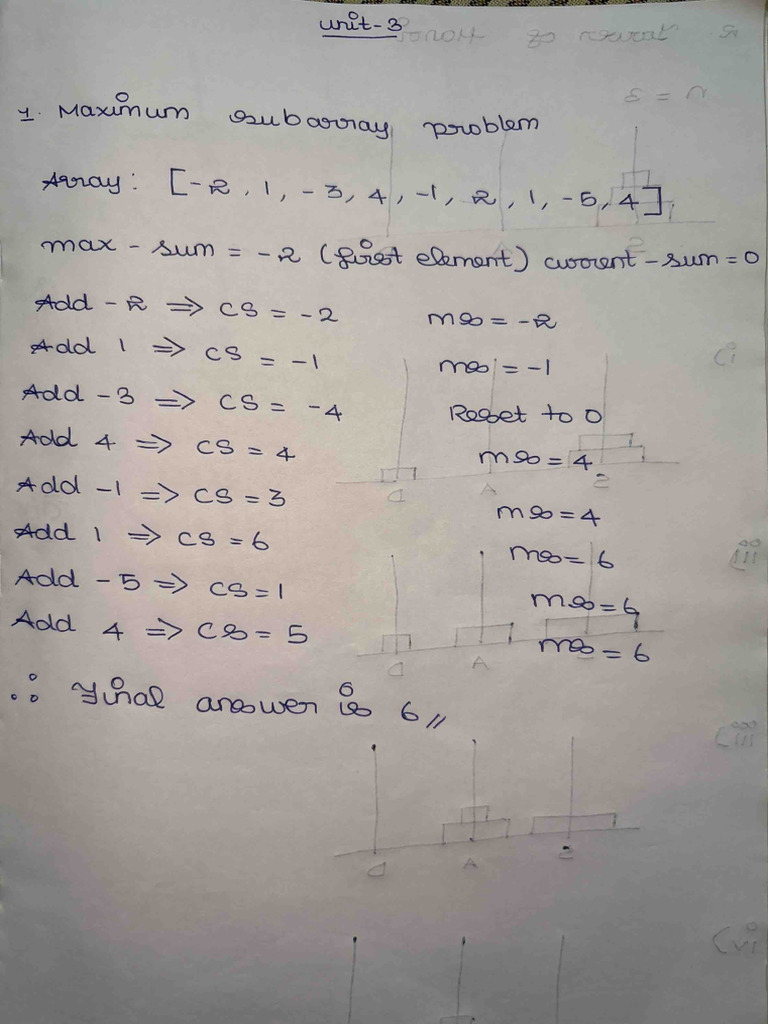 unit-3
1. Maximum subarray problem
Array: [-2, 1, -3, 4, -1, 2, 1, -5, 4]
max-sum = -2 (first element) current-sum = 0
Add -2 => CS = -2 ms = -2
Add 1 => CS = -1 ms = -1
Add -3 => CS = -4 Reset to 0
Add 4 => CS = 4 ms = 4
Add -1 => CS = 3 ms = 4
Add 1 => CS = 6 ms = 6
Add -5 => CS = 1 ms = 6
Add 4 => CS = 5 ms = 6
∴ Final answer is 6 //